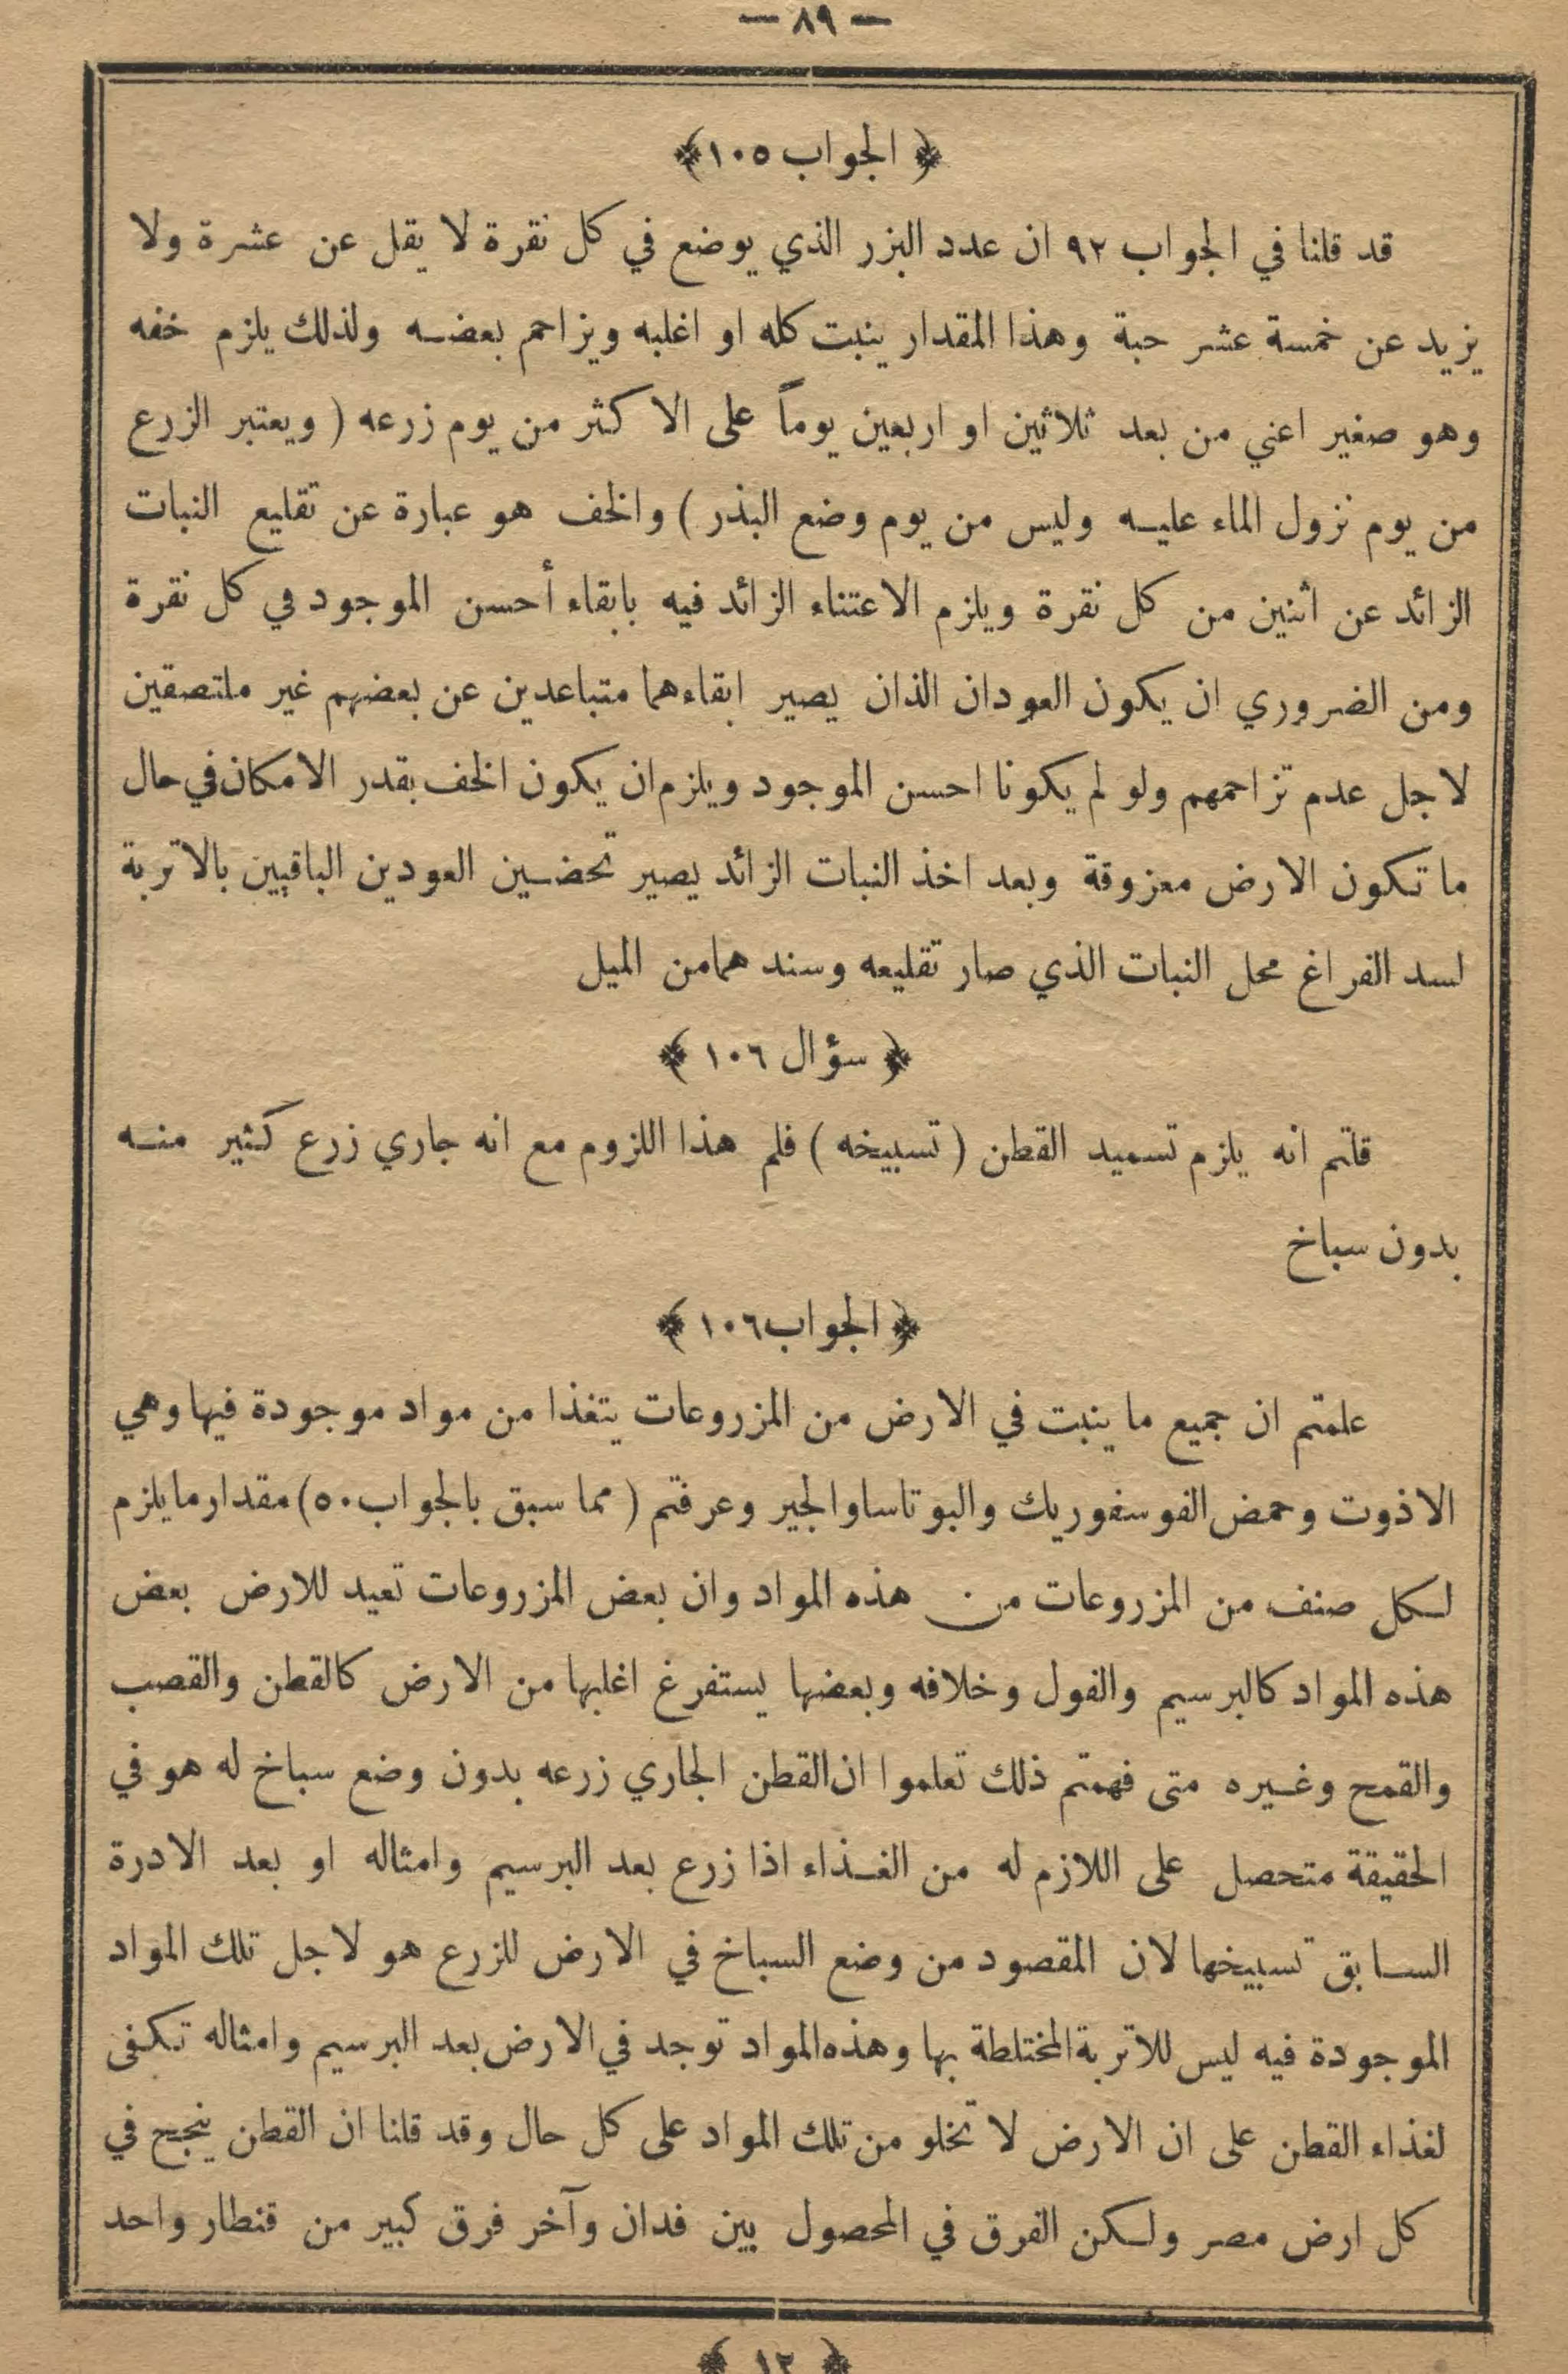 — ٨٩ —
﴿ الجواب ١٠٥ ﴾
قد قلنا في الجواب ٩٢ ان عدد البزر الذي يوضع في كل نقرة لا يقل عن عشرة ولا
يزيد عن خمسة عشر حبة وهذا المقدار ينبت كله او اغلبه ويزاحم بعضه ولذلك يلزم خفه
وهو صغير اعني من بعد ثلاثين او اربعين يوماً على الاكثر من يوم زرعه ( ويعتبر الزرع
من يوم نزول الماء عليه وليس من يوم وضع البذر ) والخف هو عبارة عن تقليع النبات
الزائد عن اثنين من كل نقرة ويلزم الاعتناء الزائد فيه بابقاء أحسن الموجود في كل نقرة
ومن الضروري ان يكون العودان الذان يصير ابقاءهما متباعدين عن بعضهم غير ملتصقين
لاجل عدم تزاحمهم ولو لم يكونا احسن الموجود ويلزم ان يكون الخف بقدر الامكان في حال
ما تكون الارض معزوقة وبعد اخذ النبات الزائد يصير تحضين العودين الباقيين بالاتربة
لسد الفراغ محل النبات الذي صار تقليعه وسندهما من الميل
﴿ سؤال ١٠٦ ﴾
قلتم انه يلزم تسميد القطن ( تسبيخه ) فلم هذا اللزوم مع انه جاري زرع كثير منه
بدون سباخ
﴿ الجواب ١٠٦ ﴾
علمتم ان جميع ما ينبت في الارض من المزروعات يتغذا من مواد موجودة فيها وهي
الاذوت وحمض الفوسفوريك والبوتاسا والجير وعرفتم ( مما سبق بالجواب ٥٠ ) مقدار ما يلزم
لكل صنف من المزروعات من هذه المواد وان بعض المزروعات تعيد للارض بعض
هذه المواد كالبرسيم والفول وخلافه وبعضها يستفرغ اغلبها من الارض كالقطن والقصب
والقمح وغيره متى فهمتم ذلك تعلموا ان القطن الجاري زرعه بدون وضع سباخ له هو في
الحقيقة متحصل على اللازم له من الغذاء اذا زرع بعد البرسيم وامثاله او بعد الادرة
السابق تسبيخها لان المقصود من وضع السباخ في الارض للزرع هو لاجل تلك المواد
الموجودة فيه ليس للاتربة المختلطة بها وهذه المواد توجد في الارض بعد البرسيم وامثاله تكفى
لغذاء القطن على ان الارض لا تخلو من تلك المواد على كل حال وقد قلنا ان القطن ينجح في
كل ارض مصر ولكن الفرق في المحصول بين فدان وآخر فرق كبير من قنطار واحد
﴿ ١٢ ﴾